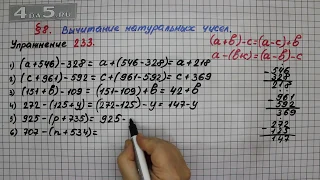 4PAD-5.RU
§8. Вычитание натуральных чисел.
Упражнение 233.
(a+b)-c=(a-c)+b
a-(b+c)=(a-b)-c
1) (a+546)-328= a+(546-328)= a+218
2) (c+961)-592= c+(961-592)= c+369
3) (151+b)-109= (151-109)+b= 42+b
4) 272-(125+y)= (272-125)-y= 147-y
5) 925-(p+735)= 925-
6) 707-(n+534)=
-546
328
218
-961
592
369
-272
125
147